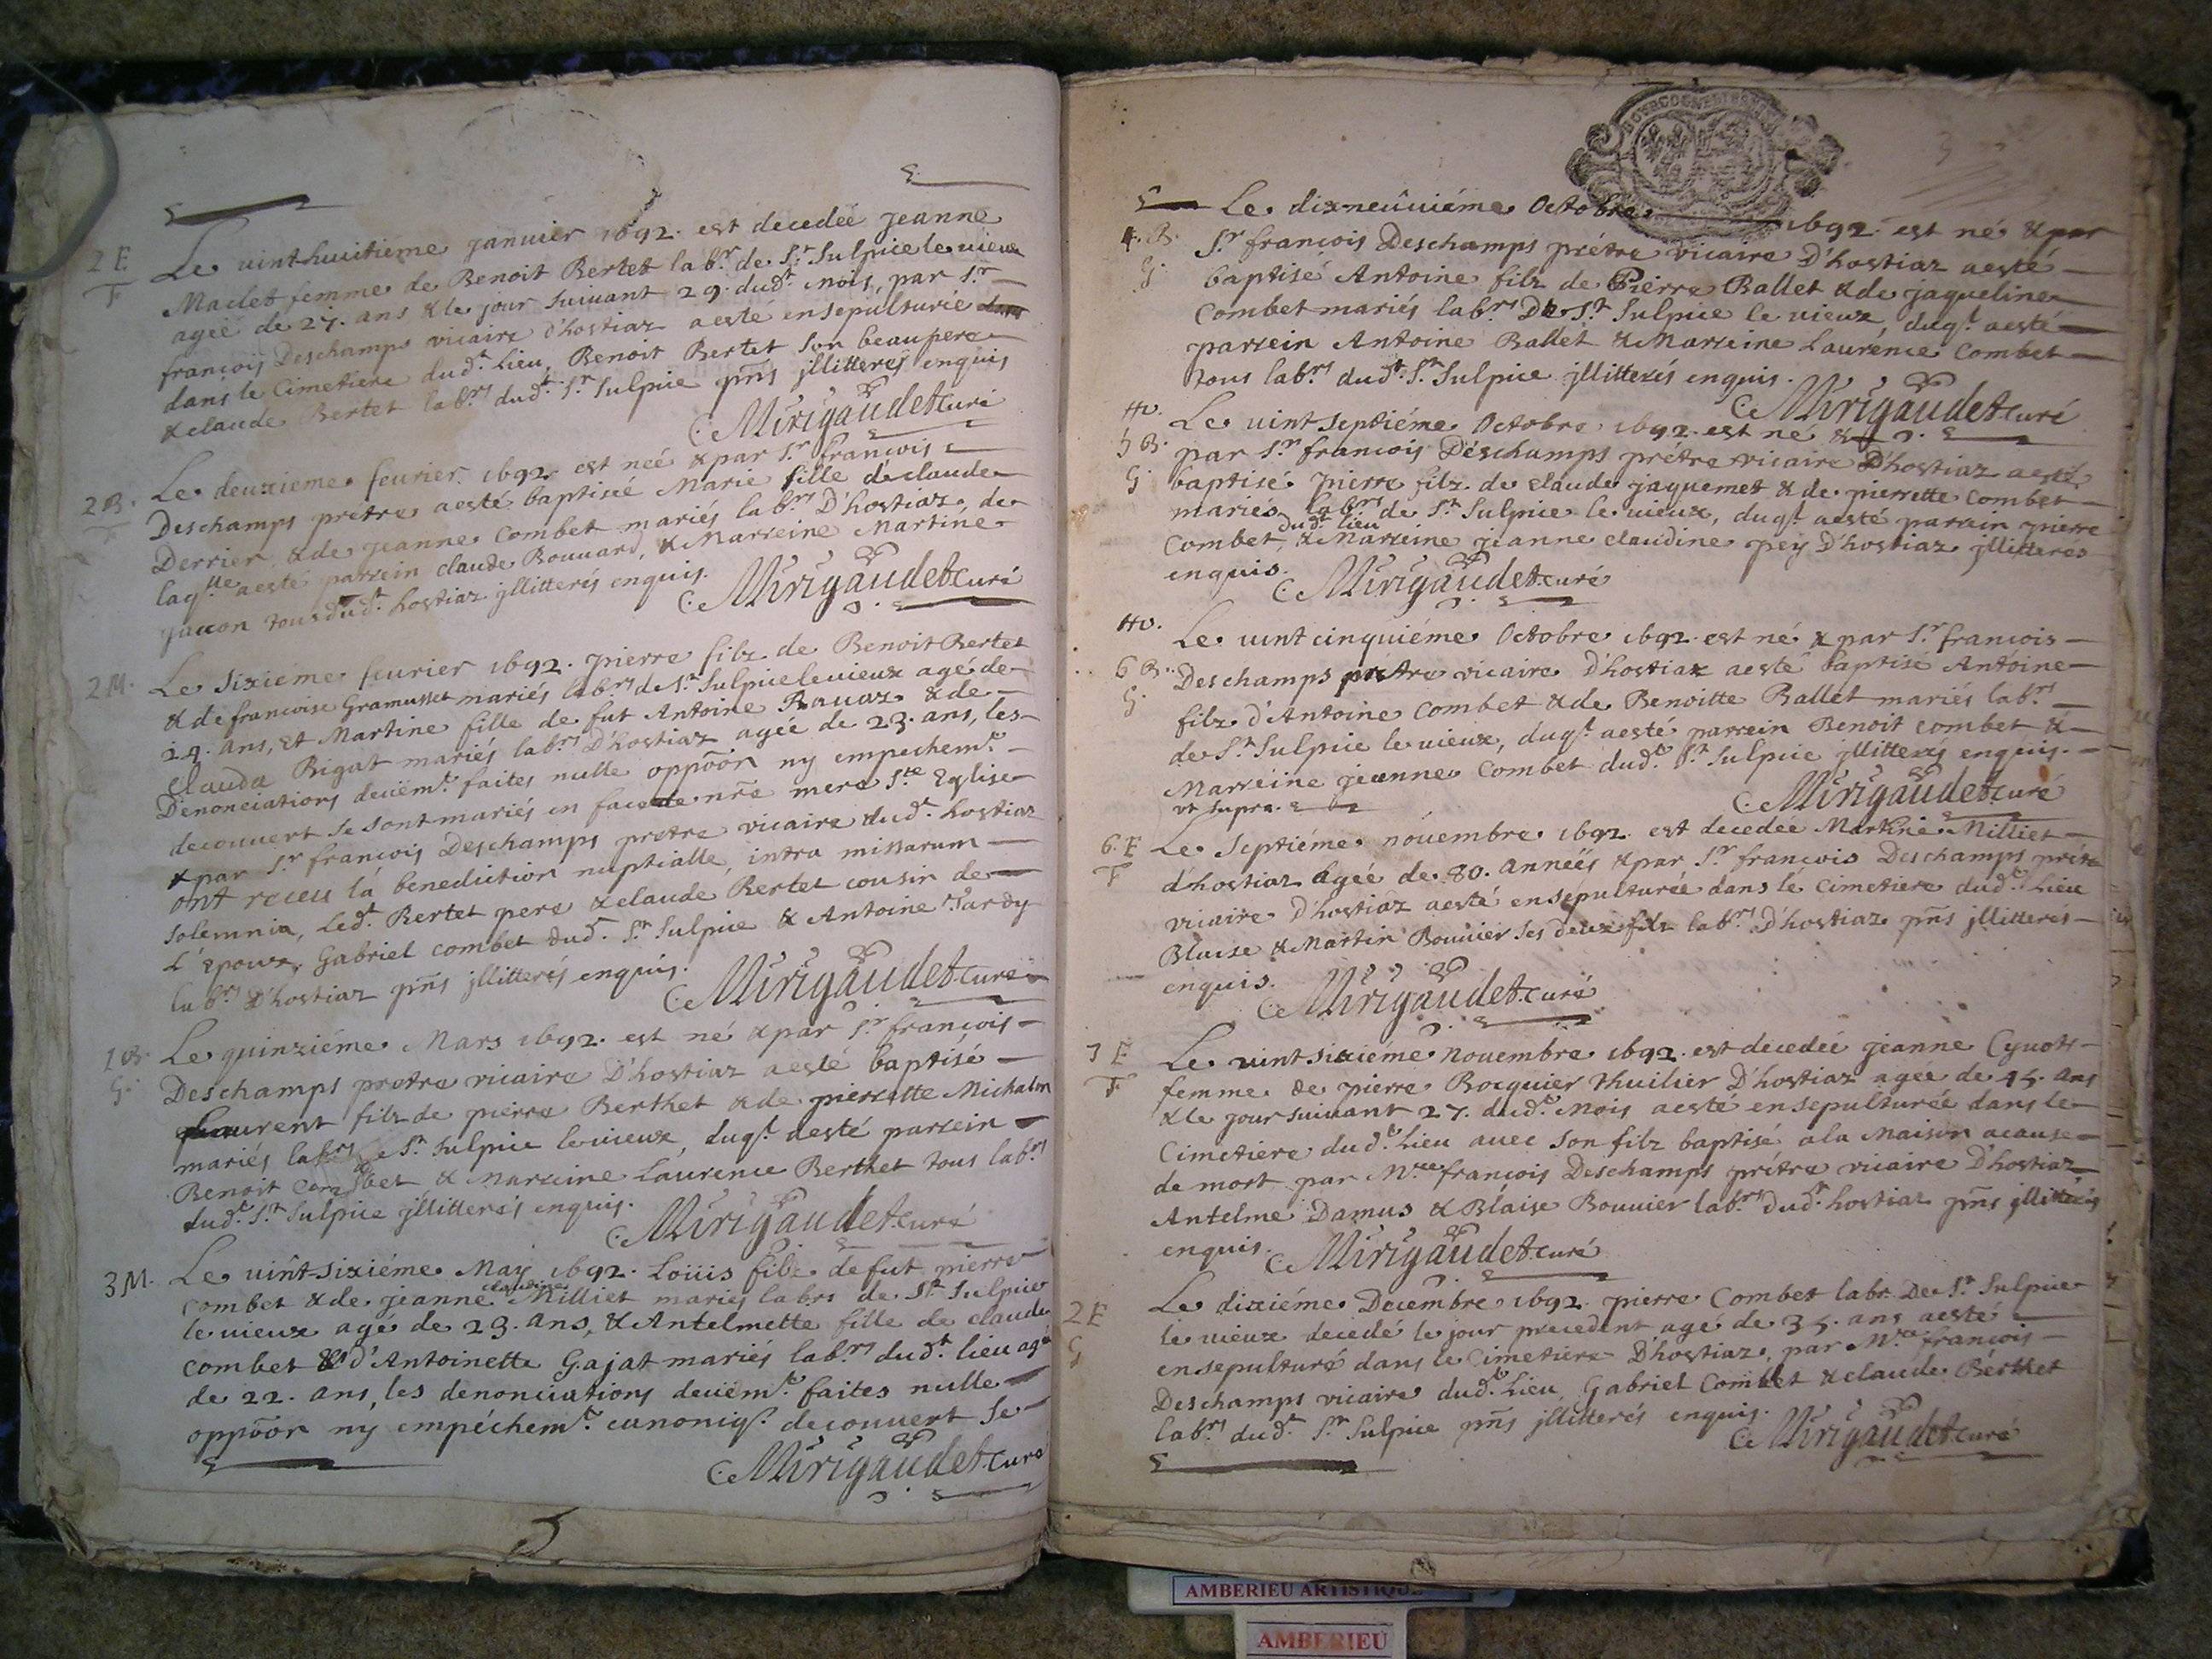 2 E
F
Le vint-huuitiéme januier 1692. est decedeé jeanne
Maclet femme de Benoit Bertet lab.rs de S.t Sulpice le uieux
ageé de 27. ans & le jour suiuant 29. dud.t mois, par S.r
françois Deschamps vicaire d'hostiaz aesté ensepulturée
dans le Cimetiere dud.t Lieu, Benoit Bertet son beaupere
& claude Bertet lab.rs dud.t S.t Sulpice pñs jllitterés enquis
C. Mirigaudet curé
2 B.
Le deuxieme feurier 1692 est neé & par S.r françois
Deschamps prétre aesté baptiseé Marie fille de claude
Derrier & de jeanne Combet mariés lab.rs D'hostiaz, de
laq.lle aesté parrein claude Bouuard, & Marreine Martine
jacon tous dud.t hostiaz jllitterés enquis.
C. Mirigaudet curé
2 M.
Le sixieme feurier 1692. pierre filz de Benoit Bertet
& de francoise Gramusset mariés lab.rs de S.t Sulpice le uieux agé de
29. ans, Et Martine fille de fut Antoine Rauaz & de
Clauda Bigat mariés lab.rs D'hostiaz agée de 23. ans, les
Denonciations deuëm.t faites nulle oppõõn ny empechem.t
decouuert se sont mariés en face de nr̃e mere S.te Eglise
& par S.r françois Deschamps pretre vicaire dud.t hostiaz
ont receu la benediction nuptialle, intra missarum
solemnia, Led.t Bertet pere & claude Bertet cousin de
L'Epoux, Gabriel combet dud.t S.t Sulpice & Antoine Tardy
lab.rs D'hostiaz pñs jllitterés enquis.
C. Mirigaudet curé
1 B.
G.
Le quinziéme Mars 1692. est né & par S.r françois
Deschamps pretre vicaire D'hostiaz aesté baptisé
Laurent filz de pierre Berthet & de pierrette Michalon
mariés lab.rs de S.t Sulpice le uieux, duq.l aesté parrein
Benoit Combet & Marreine Laurence Berthet tous lab.rs
dud.t S.t Sulpice jllitterés enquis.
C. Mirigaudet curé
3 M.
Le uint-sixiéme May 1692. Loüis filz de fut pierre
claudine
combet & de jeanne Milliet mariés labrs de S.t Sulpice
le uieux agé de 23. ans, & Antelmette fille de claude
combet & d'Antoinette Gajat mariés lab.rs dud.t lieu agé
de 22. ans, les denonciations deuëm.t faites nulle
oppõõn ny empéchem.t canoniq.e decouuert se
C. Mirigaudet curé
Le dixneûuiéme Octobre 1692 est né & par
4. B.
G.
S.r francois Deschamps prétre vicaire D'hostiaz aesté
baptisé Antoine filz de Pierre Ballet & de jaqueline
Combet mariés lab.rs De S.t Sulpice le uieux, duq.l aesté
parrein Antoine Ballet & Marreine Laurence Combet
tous lab.rs dud.t S.t Sulpice jllitterés enquis.
C. Mirigaudet curé
5 B.
G
Le uint septiéme Octobre 1692 est né &
par S.r francois Déschamps prétre vicaire D'hostiaz aesté
baptisé pierre filz de claude jaquemet & de pierrette Combet
mariés lab.rs de S.t Sulpice le uieux, duq.l aesté parrain pierre
dud.t lieu
Combet, & Marreine jeanne claudine pey D'hostiaz jllitteres
enquis.
C. Mirigaudet curé
6 B.
G
Le uint cinquiéme Octobre 1692 est né & par S.r francois
Deschamps prétre vicaire D'hostiaz aesté baptisé Antoine
filz d'Antoine Combet & de Benoitte Ballet mariés lab.rs
de S.t Sulpice le uieux, duq.l aesté parrein Benoit combet &
Marreine jeanne Combet dud.t S.t Sulpice jllitterés enquis.
vt supra.
C. Mirigaudet curé
6. E
F
Le Septiéme nouembre 1692 est decedée Martine Milliet
d'hostiaz ageé de 80. anneés & par S.r francois Deschamps prétre
vicaire D'hostiaz aesté ensépulturée dans lé Cimetiere dud.t Lieu
Blaise & Martin Bouuier ses deux filz lab.rs D'hostiaz pñs jllitterés
enquis.
C. Mirigaudet curé
7 E
F
Le uint sixiéme Nouembre 1692. est decedée jeanne
femme de pierre Bocquier thuilier D'hostiaz agee de 45. ans
& le jour suiuant 27. dud.t Mois aesté ensepulturée dans le
Cimetiere dud.t Lieu auec son filz baptisé ala Maison acause
de mort par M.re françois Deschamps prétre vicaire D'hostiaz
Antelme Damus & Blaise Bouuier lab.rs dud.t hostiaz pñs jllitterés
enquis.
C. Mirigaudet curé
2 E
G
Le dixiéme Decembre 1692 pierre Combet labr. De S.t Sulpice
le uieux decedé le jour precedent agé de 35. ans aesté
ensepulturé dans le Cimetiere D'hostiaz, par M.re françois
Deschamps vicaire dud.t Lieu, Gabriel Combet & claude Bérthet
lab.rs dud.t S.t Sulpice pñs jllitterés enquis.
C. Mirigaudet curé
AMBERIEU ARTISTIQUE
AMBERIEU